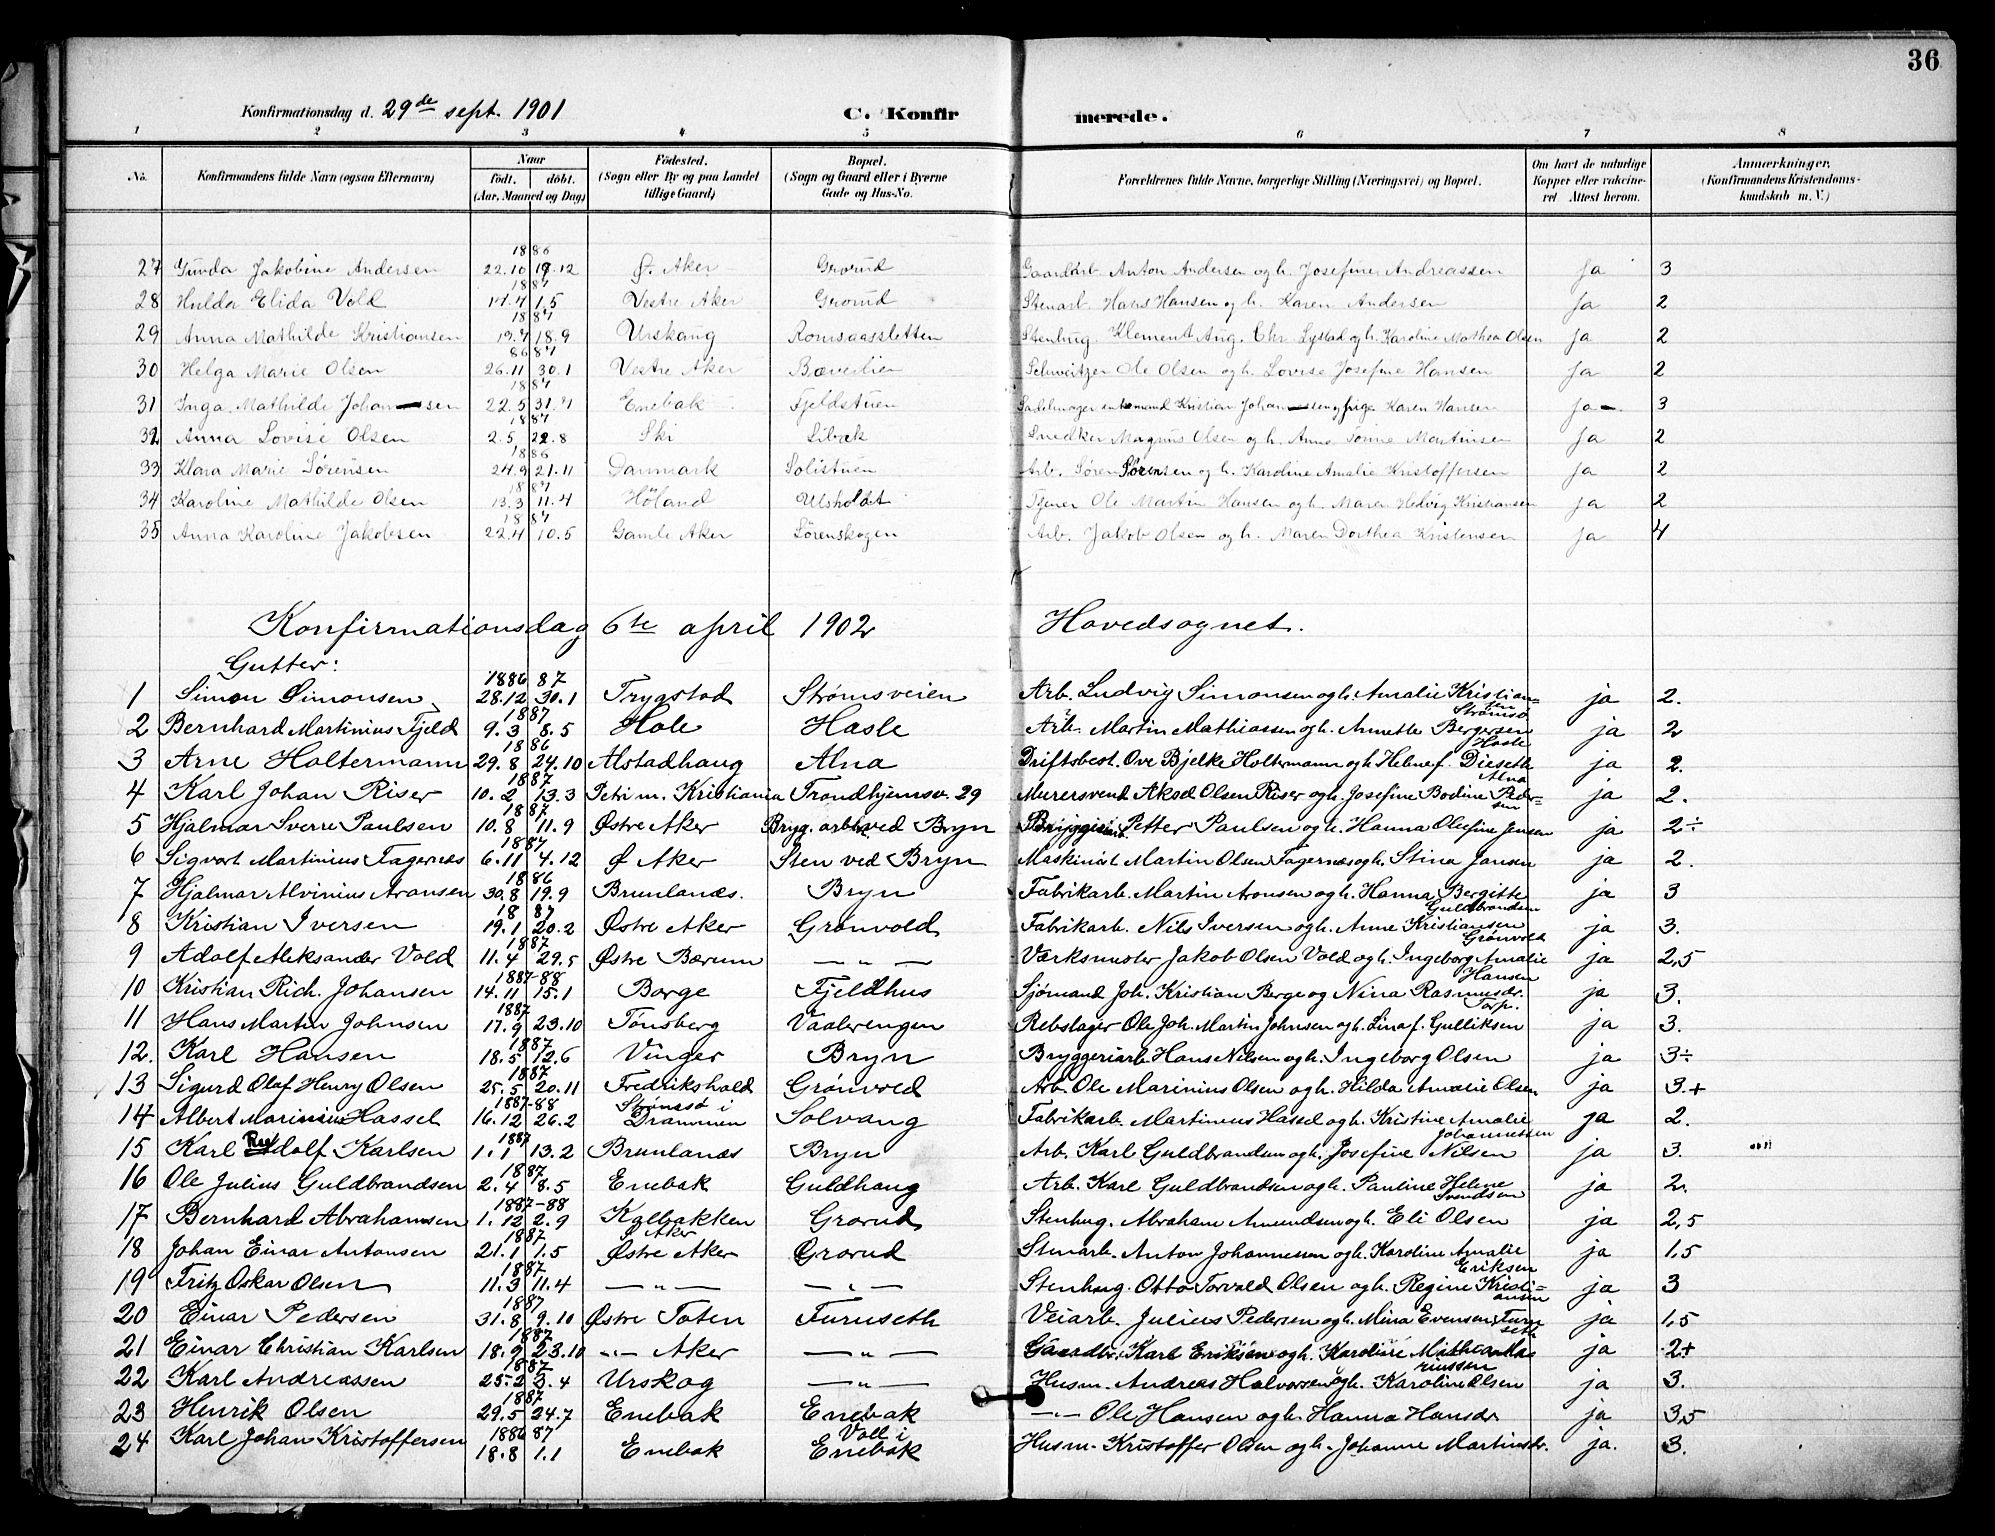 36
Konfirmationsdag d. 29de sept. 1901 C. Konfirmerede.
1 2 3 4 5 6 7 8
No. Konfirmandens fulde Navn (ogsaa Efternavn) Naar født. døbt. (Aar, Maaned og Dag) Fødested. (Sogn eller By og paa Landet tillige Gaard) Bopæl. (Sogn og Gaard eller i Byerne Gade og Hus-No. Forældrenes fulde Navne, borgerlige Stilling (Næringsvei) og Bopæl. Om havt de naturlige Kopper eller vakcineret Attest herom. Anmærkninger. (Konfirmandens Kristendomskundskab m. V.)
27 Gunda Jakobine Andersen 1886 22.10 19.12 Ø. Aker Grorud Gaardarb. Anton Andersen og h. Josefine Andreassen Ja 3
28 Hulda Elida Vold 1887 14.4 1.5 Vestre Aker Grorud Stenarb. Hans Hansen og h. Karen Andersen Ja 2
29 Anna Mathilde Kristiansen 1887 19.7 18.9 Urskaug Romsaassletten Stenhug. Klement Aug. Chr. Lystad og h. Karoline Mathea Olsen Ja 2
30 Helga Marie Olsen 86 87 26.11 30.1 Vestre Aker Bæveilien Schweitzer Ole Olsen og h. Lovise Josefine Hansen Ja 2
31 Inga Mathilde Johansen 1887 22.5 31.7 Enebak Fjeldstuen Sadelmager enkemand Kristian Johansen og pige Karen Hansen Ja 3
32 Anna Lovise Olsen 1887 2.5 28.8 Ski Libæk Snedker Magnus Olsen og h. Anne Tonine Martinsen Ja 2
33 Klara Marie Sørensen 1886 24.9 21.11 Danmark Solistuen Arb. Søren Sørensen og h. Karoline Amalie Kristoffersen Ja 2
34 Karoline Mathilde Olsen 1887 13.3 11.4 Höland Ulsholdt Tjener Ole Martin Hansen og h. Maren Hedvig Kristiansen Ja 2
35 Anna Karoline Jakobsen 1887 22.4 10.5 Gamle Aker Sörenskogen Arb. Jakob Olsen og h. Maren Dorthea Kristensen Ja 4
Konfirmationsdag 6te april 1902 Hovedsognet.
Gutter:
1 Simon Simonsen 1886 87 28.12 30.1 Trygstad Strømsveien Arb. Ludvig Simonsen og h. Amalie Kristiansen Strømsø ja 2.
2 Bernhard Martinius Fjeld 1887 9.3 8.5 Hole Hasle Arb. Martin Mathiassen og h. Annette Bergersen Hasle ja 2
3 Arne Holtermann 1886 29.8 24.10 Alstadhaug Alna Driftsbest. Ove Bjelke Holtermann og h. Helene f. Dieseth Alna ja 2.
4 Karl Johan Riser 1887 10.2 13.3 Petri m. Kristiania Trondhjemsv. 29 Murersvend Aksel Olsen Riser og h. Josefine Bodine Pedersen ja 2.
5 Hjalmar Sverre Paulsen 1887 10.8 11.9 Østre Aker Bryg. arb. ved Bryn Bryggeriarb. Petter Paulsen og h. Hanna Olefine Jensen ja 2÷
6 Sigvart Martinius Fagernæs 1887 6.11 4.12 Ø Aker Sten ved Bryn Maskinist Martin Olsen Fagernæs og h. Stina Jansen ja 2.
7 Hjalmar Alvinius Aronsen 1886 30.8 19.9 Brunlanæs. Bryn Fabrikarb. Martin Aronsen og h. Hanna Bergitte Guldbrandsen ja 3
8 Kristian Iversen 1887 19.1 20.2 Østre Aker Grønvold Fabrikarb. Nils Iversen og h. Anne Kristiansen Grønvold ja 3.
9 Adolf Aleksander Vold 1887 11.4 29.5 Østre Bærum — „ — Værksmester Jakob Olsen Vold og h. Ingeborg Amalie Hansen ja 2,5
10 Kristian Rich. Johansen 1887-88 14.11 15.1 Borge Fjeldhus Sjømand Joh. Kristian Berge og Nina Rasmusdr. Torp. ja 3.
11 Hans Martin Johnsen 1887 17.9 23.10 Tønsberg Vaalerengen Rebslager Ole Joh. Martin Johnsen og h. Lina f. Gulliksen ja 3.
12. Karl Hansen 1887 18.5 12.6 Vinger Bryn Bryggeriarb Hans Nilsen og h. Ingeborg Olsen ja 3÷
13 Sigurd Olaf Henry Olsen 1887 25.5 20.11 Fredrikshald Grønvold Arb. Ole Marinius Olsen og h. Hilda Amalie Olsen ja 3.+
14 Albert Marinius Hassel 1887-88 16.12 26.2 Strømsø i Drammen Solvang Fabrikarb. Martinius Hassel og h. Kristine Amalie Johannessen ja 2.
15 Karl Rudolf Karlsen 1887 1.1 13.2 Brunlanæs Bryn Arb. Karl Guldbrandsen og h. Josefine Nilsen ja 3.
16 Ole Julius Guldbrandsen 1887 2.4 8.5 Enebak Guldhaug Arb. Karl Guldbrandsen og h. Pauline Helene Svendsen ja 2.
17 Bernhard Abrahamsen 1887-88 1.12 2.9 Kalbakken Ø Aker Grorud Stenhug. Abraham Amundsen og h. Eli Olsen ja 2,5
18 Johan Einar Antonsen 1887 21.1 1.5 Østre Aker Grorud Stenarb. Anton Johannessen og h. Karoline Amalie Eriksen ja 1,5
19 Fritz Oskar Olsen 1887 11.3 11.4 — „ — — „ — Stenhug. Otto Torvald Olsen og h. Regine Kristiansen ja 3
20 Einar Pedersen 1887 31.8 9.10 Østre Toten Furuseth Veiarb. Julius Pedersen og h. Mina Evensen, Furuseth ja 1,5
21 Einar Christian Karlsen 1887 18.9 23.10 -„- Aker — „ — Gaardbr. Karl Eriksen og h. Karoline Mathea Mariussen ja 2+
22 Karl Andreassen 1887 25.2 3.4 Urskog — „ — Husm. Andreas Halvorsen og h. Karoline Olsen ja 3.
23 Henrik Olsen 1887 29.5 24.7 Enebak Enebak —„— Ole Hansen og h. Hanna Hansdr. ja 3,5
24 Karl Johan Kristoffersen 1886 87 18.8 1.1 Enebak Voll i Enebak Husm. Kristoffer Olsen og h. Johanne Martinsdr. ja. 3.